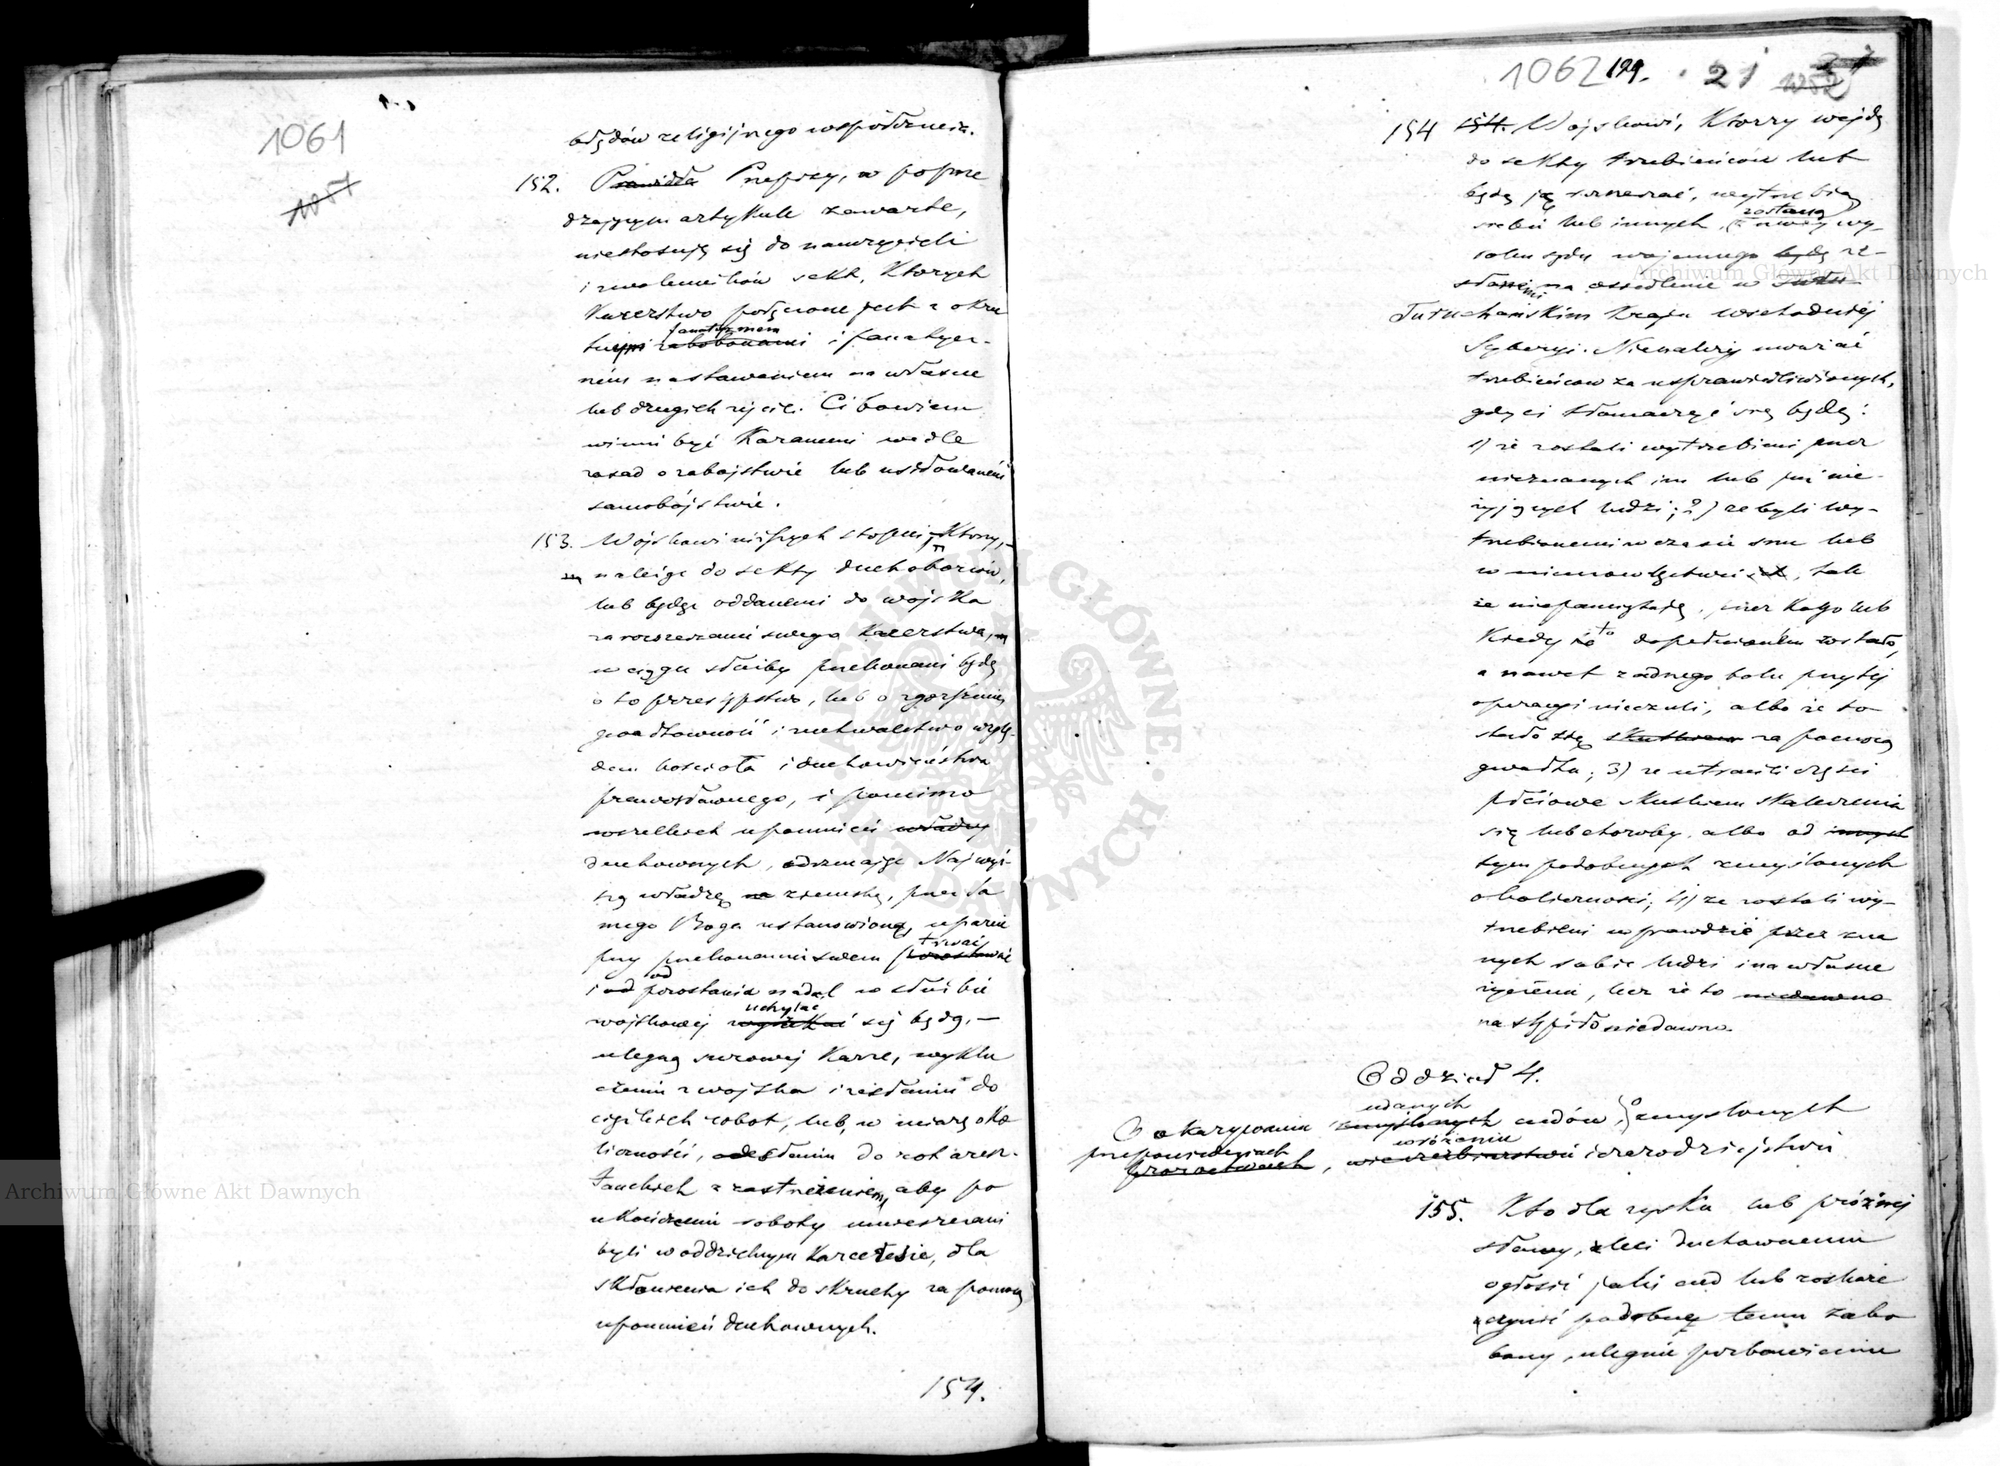 1061
1057
błędów religijnego współczucia.
152. Prawidła Przepisy, w poprze
dzającym artykule zawarte,
niestosują się do nauczycieli
i zwolenników sekt, których
Kacerstwo połączone jest z okru
tnym fanatyzmem zabobonami i fanatycz-
ném nastawaniem na własne
lub drugich życie. Ci bowiem
winni być Karanemi wedle
zasad o zabójstwie lub usiłowaném
samobójstwie.
153. Wojskowi niższych stopni, Którzy,
należąc do sekty duchoborców,
lub będąc oddanemi do wojska
za rozszerzanie swego Kacerstwa,
w ciągu służby przekonani będą
o to przestępstwo, lub o zgorszenie,
gwałtowność i zuchwalstwo wzglę-
dem kościoła i duchowieństwa
prawosławnego, i pomimo
wszelkich upomnień władzy
duchownych, odrzucając Najwyż-
szą władzę na ziemską, przez Sa
mego Boga ustanowioną, uparcie
przy przekonaniu swém trwać pozostawać
i od pozostania nadal w służbie
wojskowej uchylać się będą, —
ulegną surowej Karze, wyklu
czeniu z wojska i zesłaniu do
ciężkich robot, lub, w miarę oko
liczności, odesłaniu do rot aresz-
tanckich z zastrzeżeniem, aby po
ukończeniu roboty umieszczani
byli w oddzielnym Karcelesie, dla
skłonienia ich do skruchy za pomocą
upomnień duchownych.
154.
1062 129. 21
154 154. Wojskowi, Którzy wejdą
do sekty trzebieńców lub
będą ją rozszerzać, wytrzebią
siebie lub innych, zostaną z mocy wy-
roku sądu wojennego będą ze-
słani na osiedlenie w
Turuchańskim Kraju wschodniéj
Syberyi. Nienależy uważać
trzebieńców za usprawiedliwionych,
gdy ci tłomaczyć się będą:
1) że zostali wytrzebieni przez
nieznanych im lub już nie-
żyjących ludzi; 2) że byli wy-
trzebionemi w czasie snu lub
w niemowlęctwie, tak
że niepamiętają, przez Kogo lub
Kiedy to dopełnioném zostało,
a nawet żadnego bolu przy tej
operacyi nieczuli, albo że to
stało się skutkiem za pomocą
gwałtu; 3) że utracili części
płciowe skutkiem skaleczenia
się lub choroby, albo od innych
tym podobnych zmyślonych
okoliczności; 4) że zostali wy-
trzebieni wprawdzie przez zna
nych sobie ludzi i na własne
życzenie, lecz że to niedawno
nastąpiło niedawno.
Oddział 4.
O okazywaniu udanych zmyślonych cudów, o zmyślonych
przepowiedniach proroctwach, wróżeniu i czarodziejstwie
155. Kto dla zysku lub próżnej
sławy, zleci duchownemu
ogłosić jaki cud lub rozkaże
uczynić podobnę temu zabo
bony, ulegnie pozbawieniu